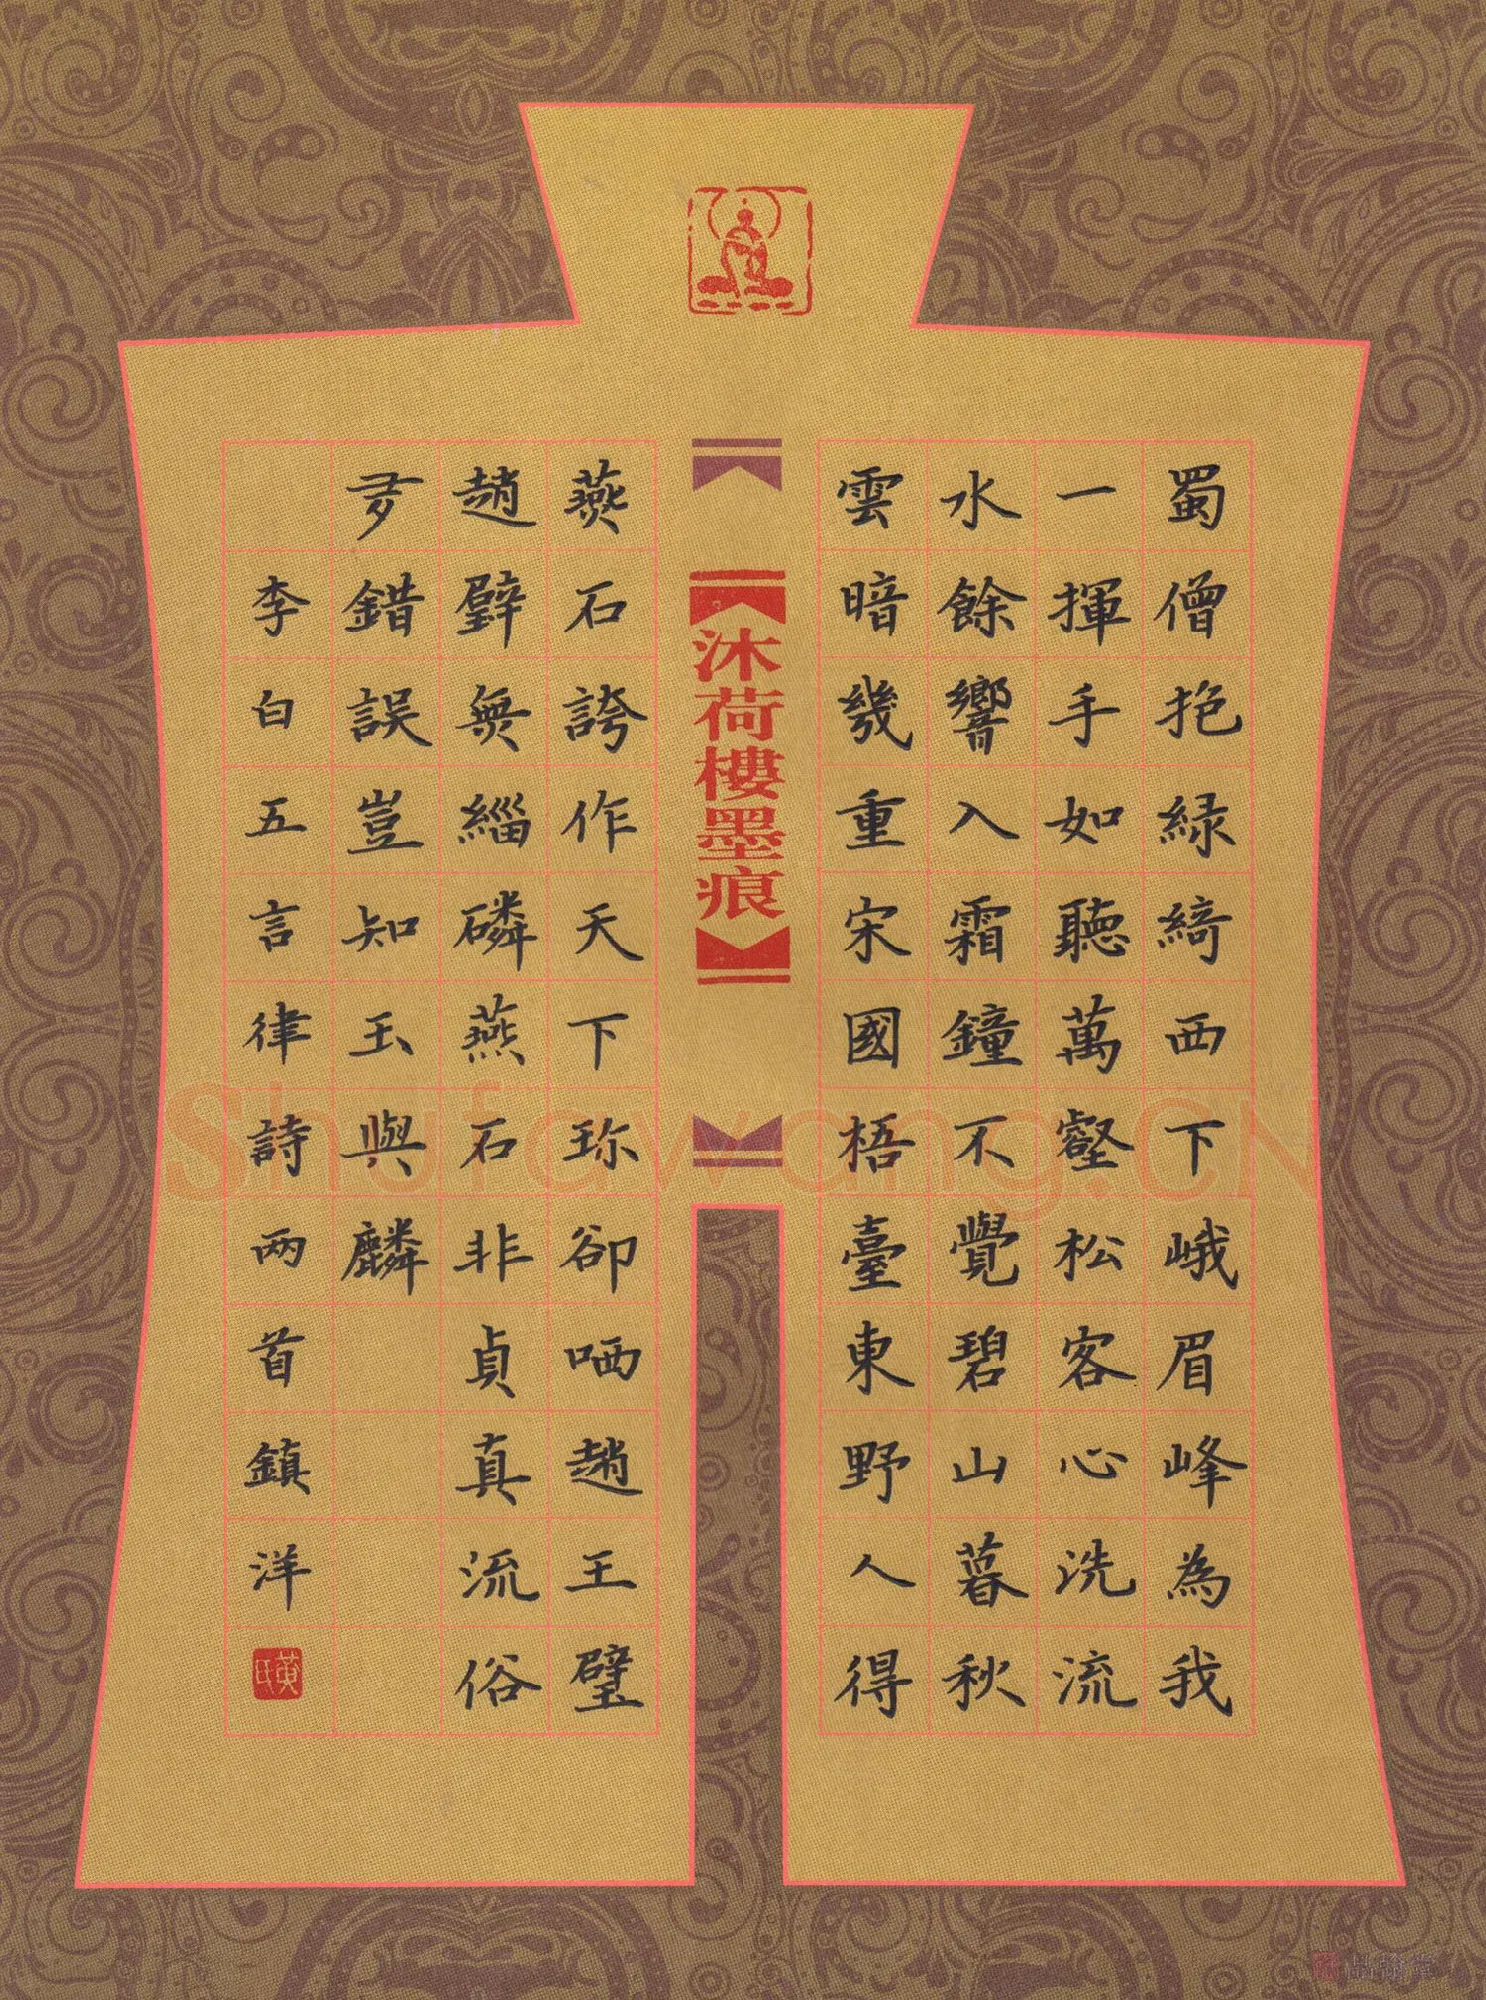 蜀僧抱緑綺西下峨眉峰為我
一揮手如聽萬壑松客心洗流
水餘響入霜鐘不覺碧山暮秋
雲暗幾重宋國梧臺東野人得
沐荷樓墨痕
燕石誇作天下珍卻哂趙王璧
趙璧無緇磷燕石非貞真流俗
多錯誤豈知玉與麟
李白五言律詩兩首鎮洋
黃氏
Shufawang.CN